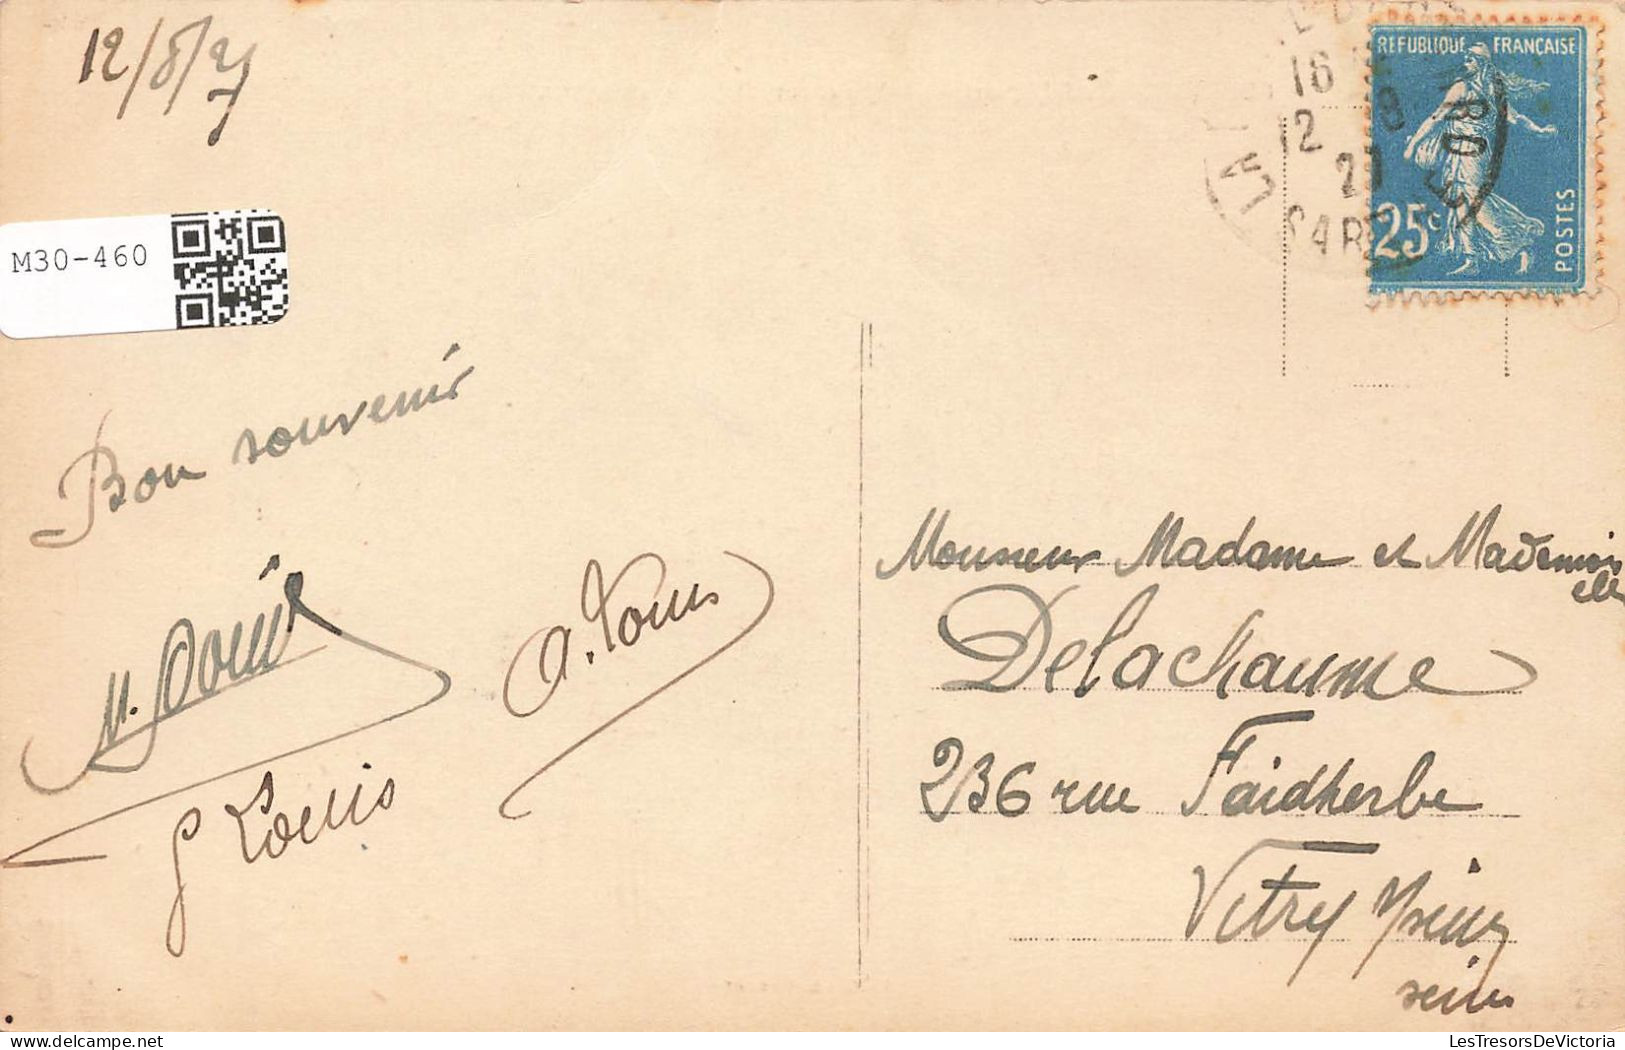 12/8/27
M30-460
Bon souvenir
M. Louis
A. Louis
G Louis
RÉPUBLIQUE FRANÇAISE
25c
POSTES
16
12 8
27
SART
Monsieur Madame et Mademoiselle
Delachaume
236 rue Faidherbe
Vitry s/seine
seine
LesTresorsDeVictoria
www.delcampe.net